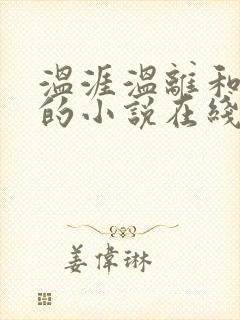 温涯温離和
的小說在綫
姜偉琳